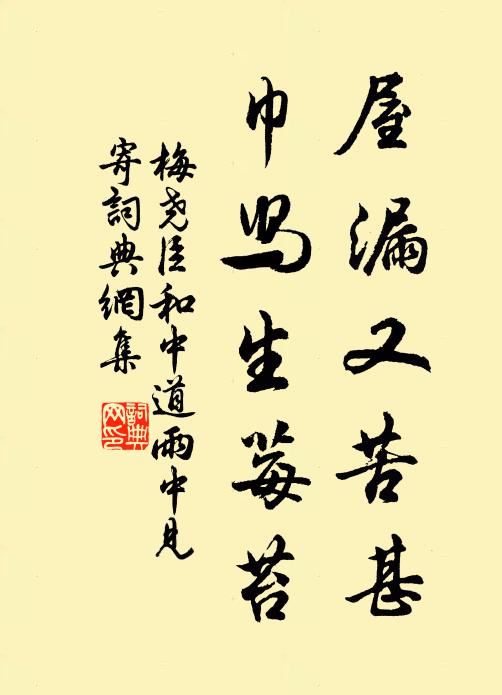 屋漏又苦甚
巾舄生莓苔
梅尧臣和中道雨中见
寄詞典網集
詞典
网印